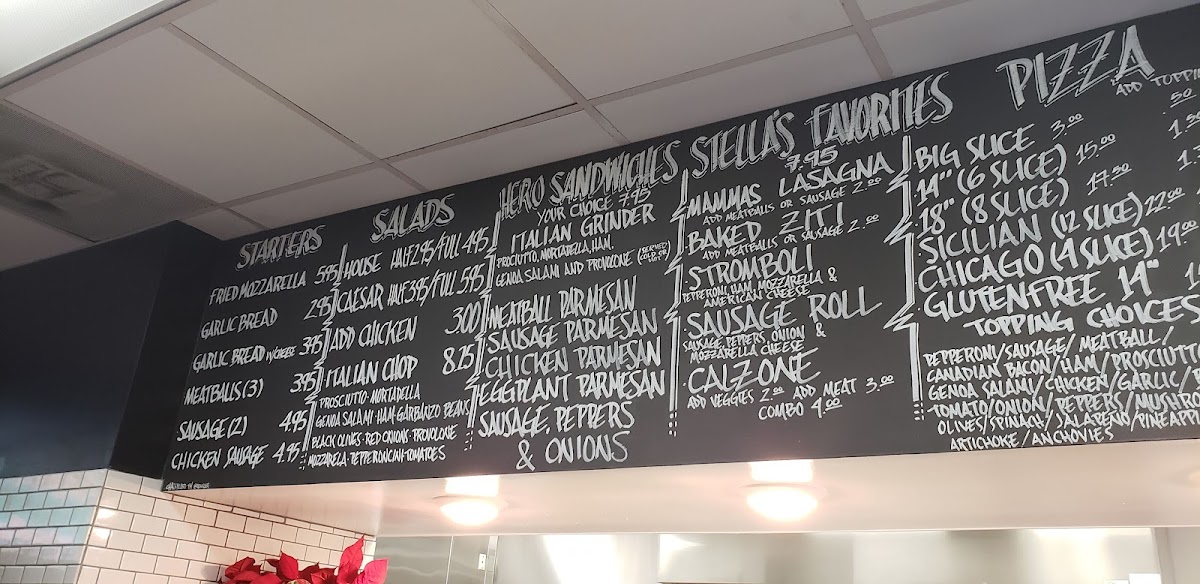 STARTERS
FRIED MOZZARELLA 5.95
GARLIC BREAD 2.95
GARLIC BREAD W/CHEESE 3.95
MEATBALLS (3) 3.95
SAUSAGE (2) 4.95
CHICKEN SAUSAGE 4.95
SALADS
HOUSE HALF 2.95/FULL 4.95
CAESAR HALF 3.95/FULL 5.95
ADD CHICKEN 3.00
ITALIAN CHOP 8.25
PROSCIUTTO · MORTADELLA
GENOA SALAMI · HAM · GARBANZO BEANS
BLACK OLIVES · RED ONIONS · PROVOLONE
MOZZARELLA · PEPPERONCINI · TOMATOES
HERO SANDWICHES
YOUR CHOICE 7.95
ITALIAN GRINDER
PROSCIUTTO, MORTADELLA, HAM,
GENOA SALAMI AND PROVOLONE
MEATBALL PARMESAN
SAUSAGE PARMESAN
CHICKEN PARMESAN
EGGPLANT PARMESAN
SAUSAGE, PEPPERS
& ONIONS
STELLA'S FAVORITES
7.95
MAMMAS LASAGNA
ADD MEATBALLS OR SAUSAGE 2.00
BAKED ZITI
ADD MEATBALLS OR SAUSAGE 2.00
STROMBOLI
PEPPERONI, HAM, MOZZARELLA &
AMERICAN CHEESE
SAUSAGE ROLL
SAUSAGE, PEPPERS, ONION &
MOZZARELLA CHEESE
CALZONE
ADD VEGGIES 2.00 ADD MEAT 3.00
COMBO 4.00
PIZZA
ADD
50
BIG SLICE 3.00
14" (6 SLICE) 15.00
18" (8 SLICE) 17.50
SICILIAN (12 SLICE) 22.00
CHICAGO (4 SLICE) 19.00
GLUTENFREE 14"
TOPPING CHOICES
PEPPERONI/SAUSAGE/MEATBALL/
CANADIAN BACON/HAM/PROSCIUTTO
GENOA SALAMI/CHICKEN/GARLIC/
TOMATO/ONION/PEPPERS/
OLIVES/SPINACH/JALAPENO/
ARTICHOKE/ANCHOVIES